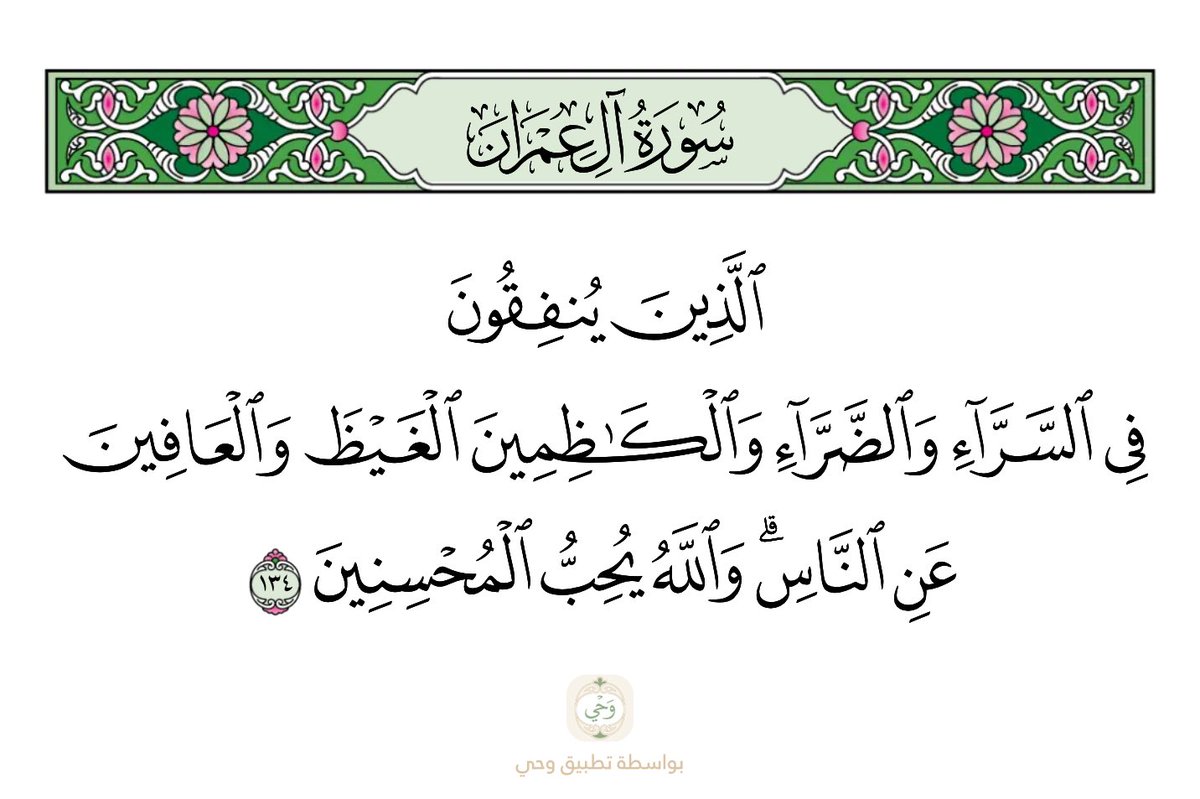 سُورَةُ آلِ عِمْرَانَ
ٱلَّذِينَ يُنفِقُونَ
فِي ٱلسَّرَّآءِ وَٱلضَّرَّآءِ وَٱلْكَـٰظِمِينَ ٱلْغَيْظَ وَٱلْعَافِينَ
عَنِ ٱلنَّاسِ ۗ وَٱللَّهُ يُحِبُّ ٱلْمُحْسِنِينَ ١٣٤
وَحْي
بواسطة تطبيق وحي